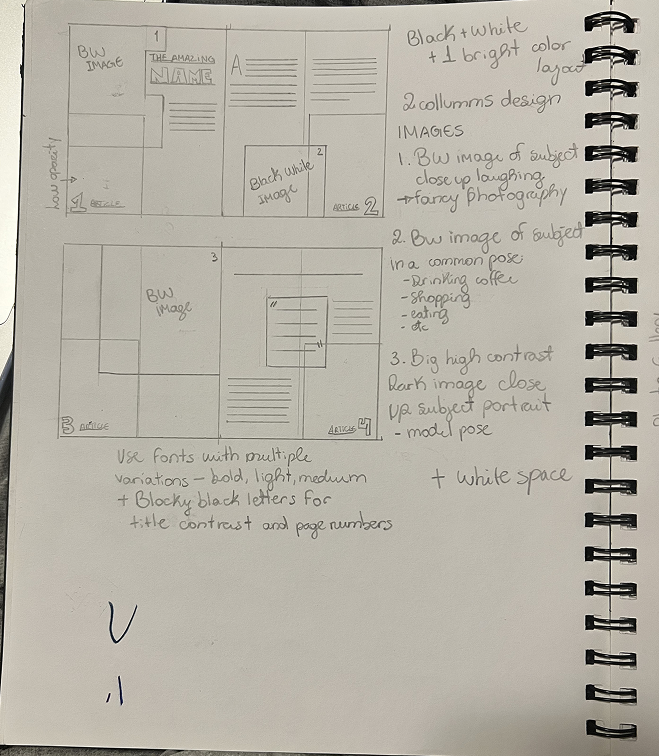 BW
IMAGE
1
THE AMAZING
NAME
A
low opacity
1 ARTICLE
Black White
IMAGE
2
ARTICLE 2
Black + white
+ 1 bright color
layout
2 collumms design
IMAGES
1. BW image of subject
close up laughing
→ fancy photography
2. BW image of subject
in a common pose:
- Drinking coffee
- Shopping
- eating
- etc
3. Big high contrast
Dark image close
up subject portrait
- model pose
+ white space
BW
image
3
"
"
3 ARTICLE
ARTICLE 4
Use fonts with multiple
variations – bold, light, medium
+ Blocky black letters for
title contrast and page numbers